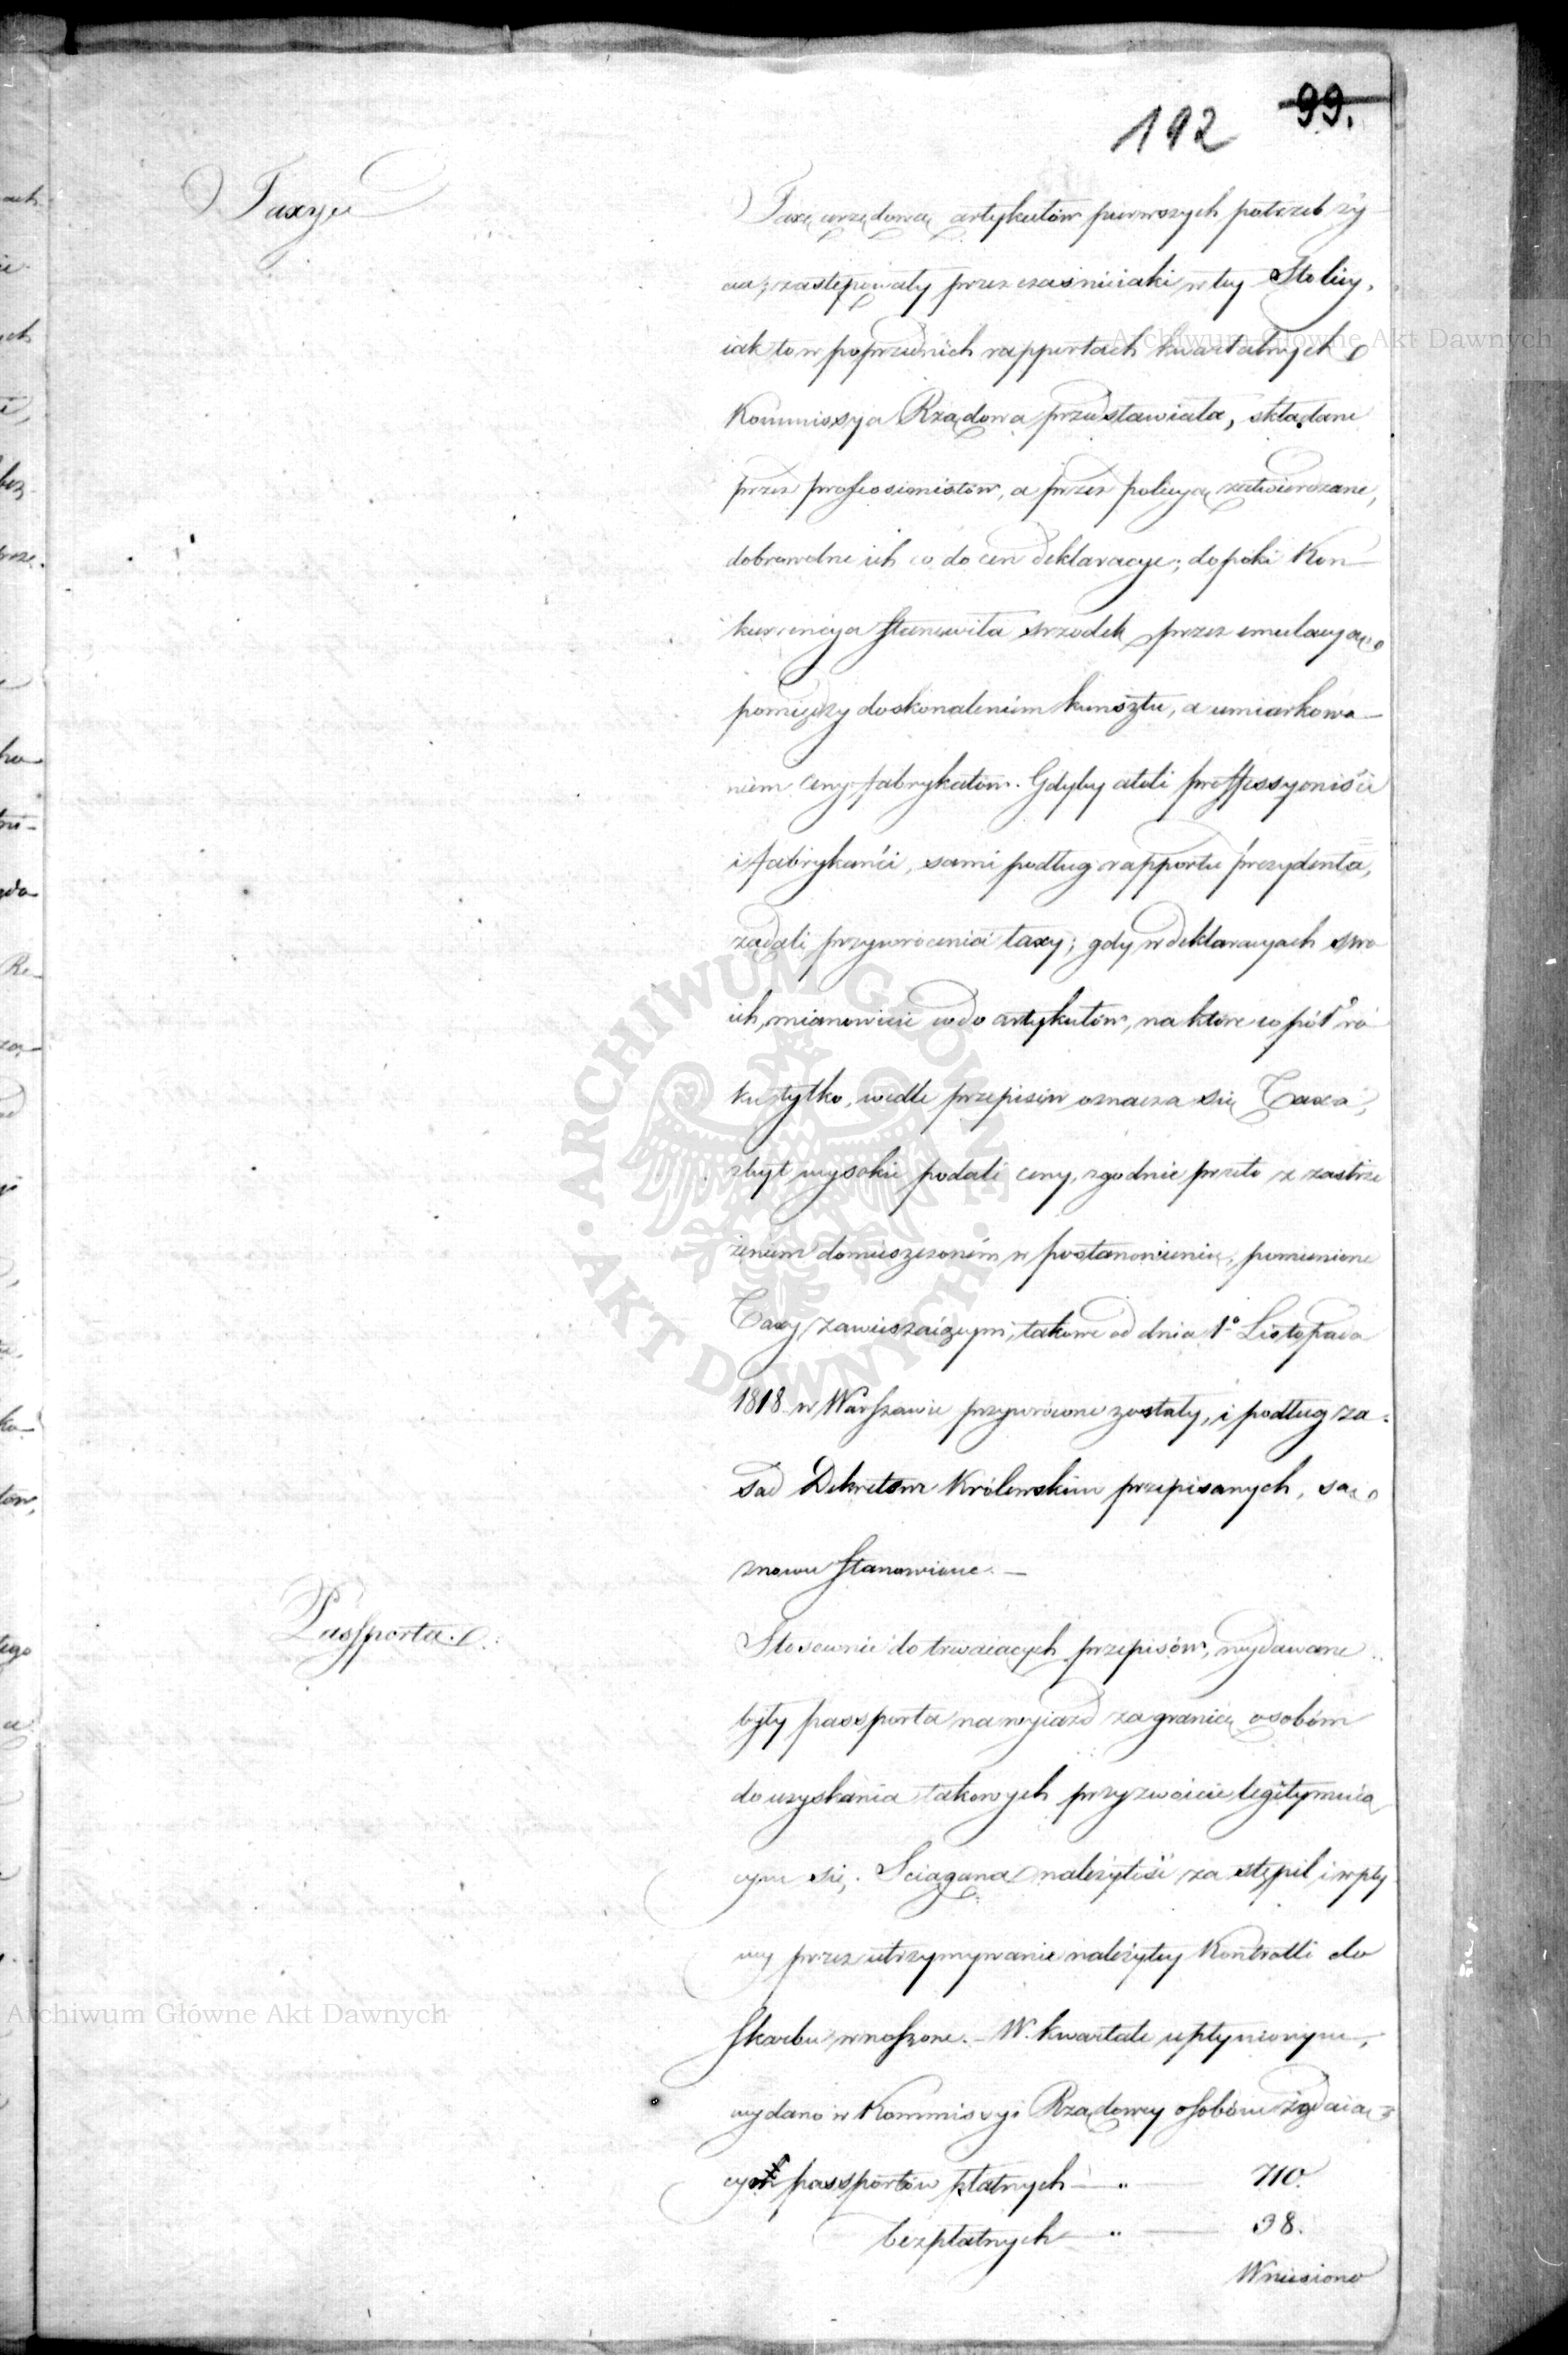 192 99.
Taxy
Taxę urzędową artykułów pierwszych potrzeb ży
cia, zastępowały przez czas nieiaki w tey Stolicy,
iak to w poprzednich rapportach kwartalnych
Kommissya Rządowa przedstawiała, składane
przez professionistów, a przez policyą zatwierdzane,
dobrowolne ich co do cen deklaracye; dopoki Kon-
kurrencya stanowiła srzodek przez emulacyą
pomiędzy doskonaleniem kunsztu, a umiarkowa-
niem ceny fabrykatów. Gdyby atoli professyoniści
i fabrykańci, sami podług rapportu prezydenta,
żądali przywrócenia taxy; gdy w deklaracyach swo
ich, mianowicie co do artykułów, na które co pół ro
ku tylko, wedle przepisów oznacza się Taxa,
zbyt wysokie podali ceny, zgodnie przeto z zastrze
żeniem domieszczoném w postanowieniu, pomienione
Taxy zawieszaiącym, takowe od dnia 1º Listopada
1818 w Warszawie przywrócone zostały, i podług za-
sad Dekretem Królewskim przepisanych, są
znowu stanowione. —
Passporta.
Stosownie do trwaiących przepisów, wydawane
były passporta na wyiazd za granicę osobom
do uzyskania takowych przyzwoicie legitymuią
cym się. Sciągana należytość za stępel i wpły
wy przez utrzymywanie należytey Kontrolli do
Skarbu wnoszone. – W kwartale upłynionym,
wydano w Kommissyi Rządowey osobom żądaią-
cym passportów płatnych — „ — 710.
bezpłatnych — „ — 38.
Wniesiono
Archiwum Główne Akt Dawnych
Archiwum Główne Akt Dawnych
ARCHIWUM GŁÓWNE · AKT DAWNYCH ·